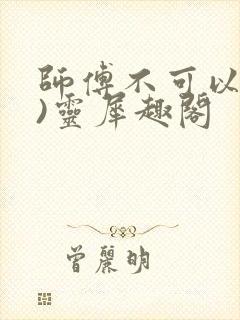 師傅不可以
)靈犀趣閣
曾麗明